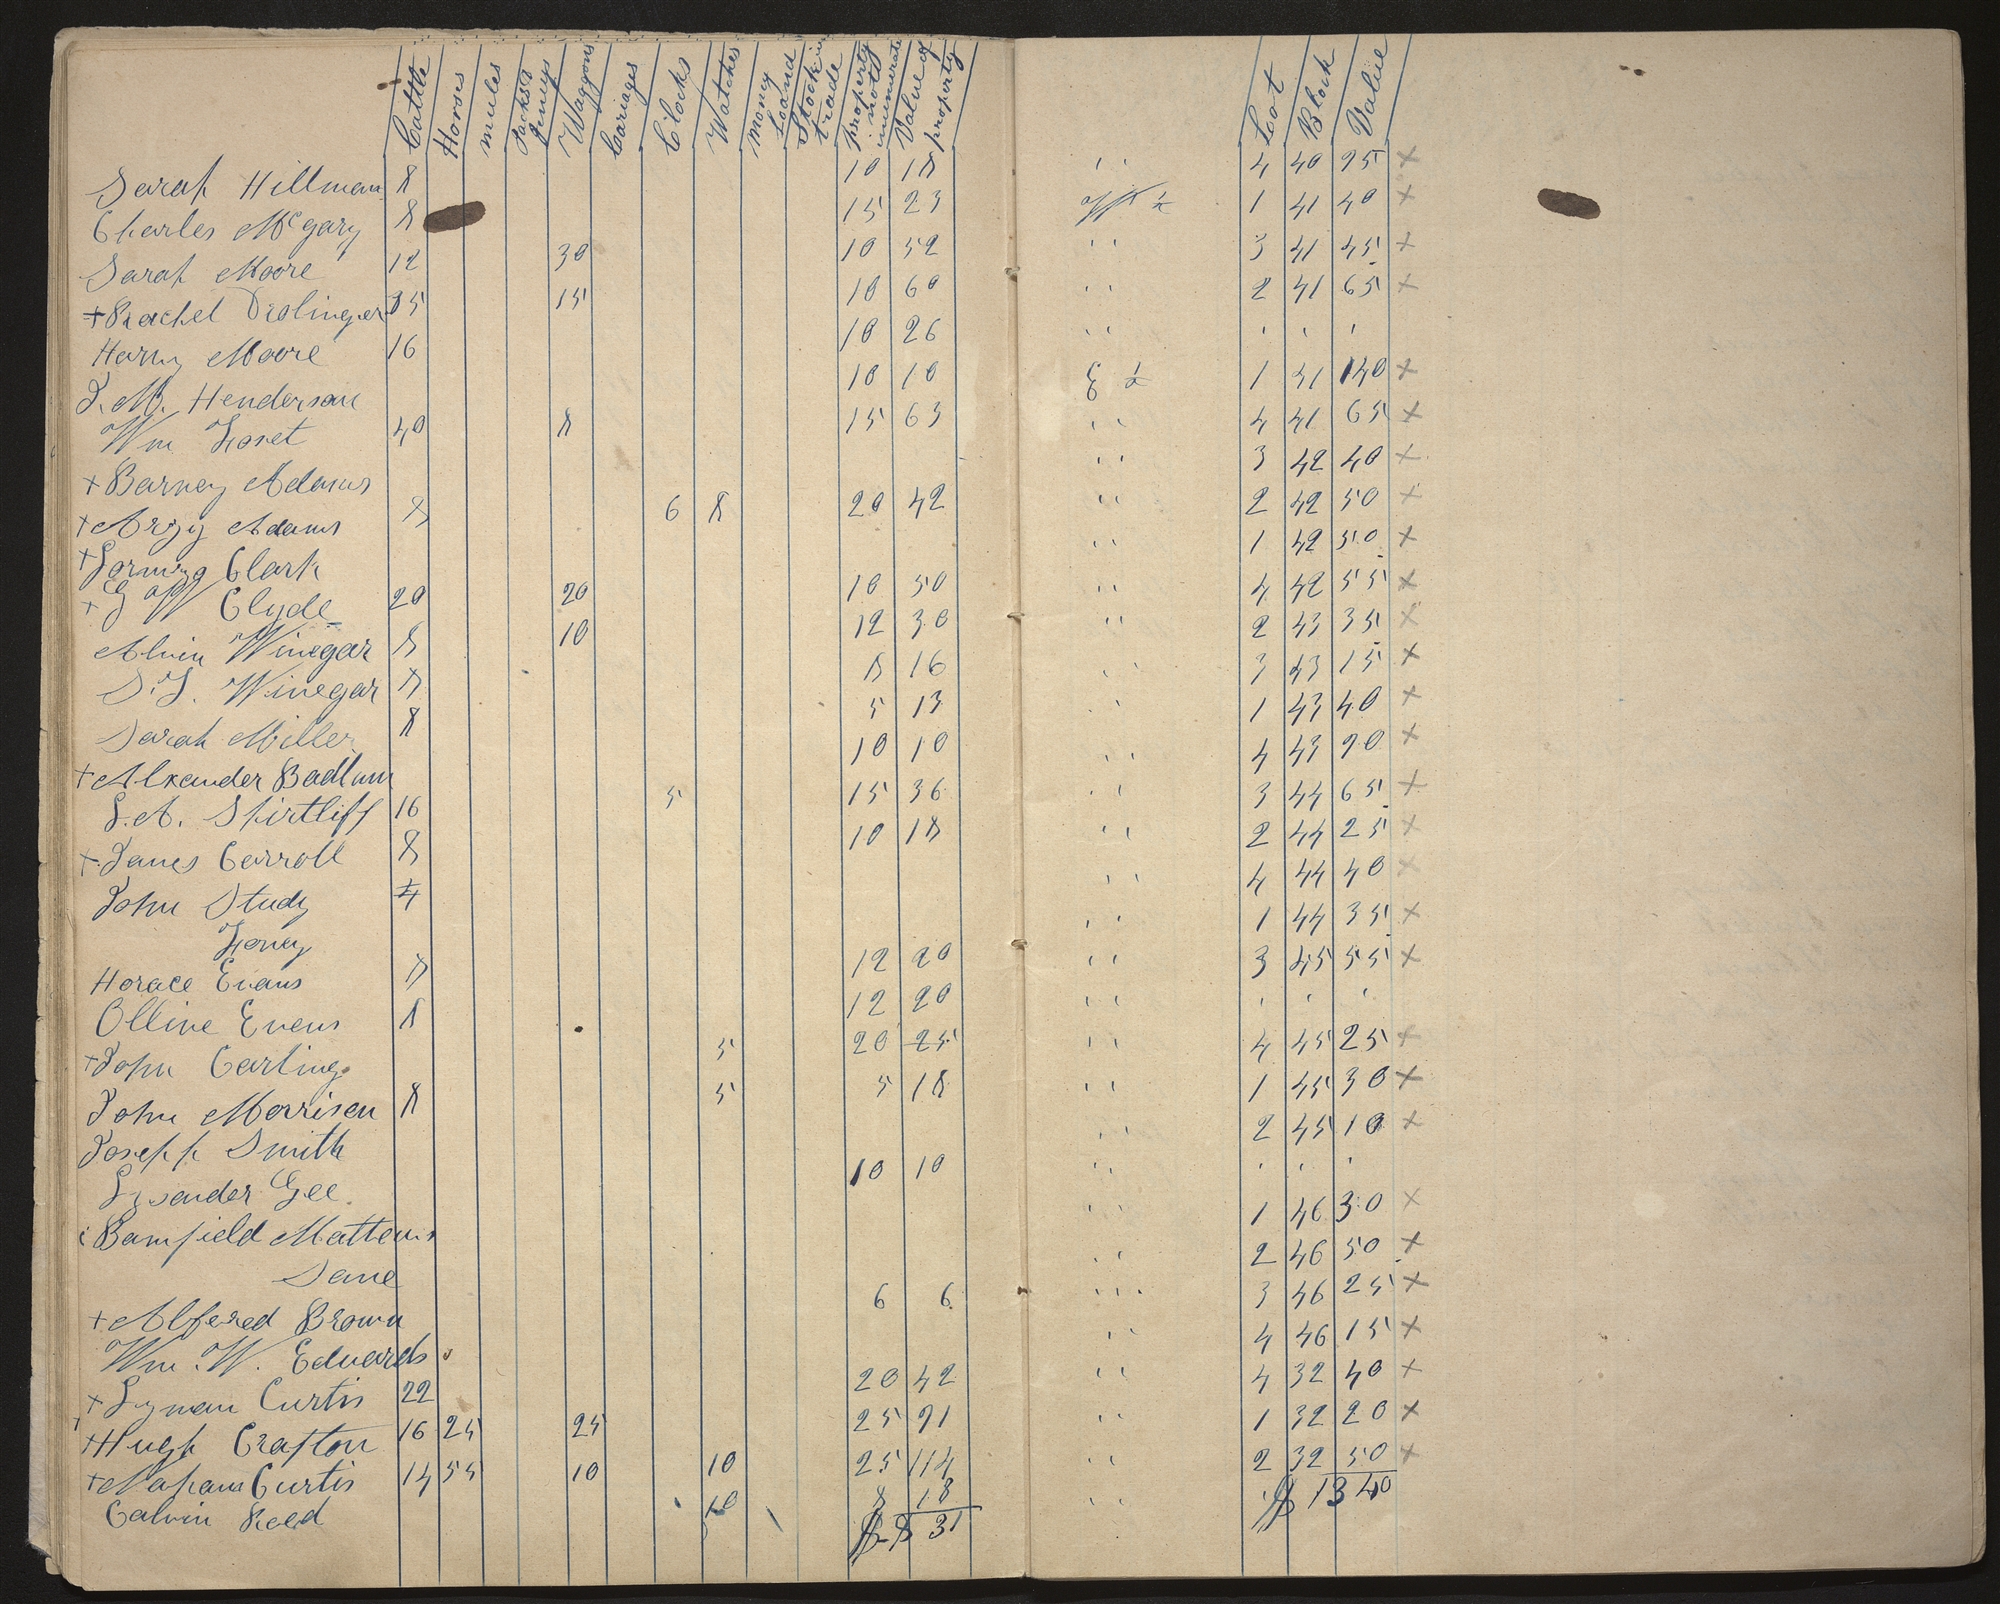 Cattle Horses mules Jacks & Jennys Waggons Cariages Clocks Watches mony Loand Stock in trade property not inumerated Value of property Loot Block Value
Sarah Hillman 8 10 18 '' 4 40 25 ×
Charles McGary 8 15 23 1/2 1 41 40 ×
Sarah Moore 12 30 10 52 '' 3 41 45 ×
+ Rachel Drolinger 35 15 10 60 '' 2 41 65 ×
Harny Moore 16 10 26 '' ' ' '
J. M. Henderson 10 10 E 1/2 1 41 140 ×
Wm Loset 40 8 15 63 '' 4 41 65 ×
+ Barney Adams '' 3 42 40 ×
+ Arzy Adams 8 6 8 20 42 '' 2 42 50 ×
+ Clark '' 1 42 50 ×
+ G W Clyde 20 20 10 50 '' 4 42 55 ×
Alvin Winegar 8 10 12 30 '' 2 43 35 ×
S. T. Winegar 8 8 16 '' 3 43 15 ×
Sarah Miller 8 5 13 '' 1 43 40 ×
+ Alxander Badlum 10 10 '' 4 43 20 ×
L. A. Shirtliff 16 5 15 36 '' 3 44 65 ×
+ James Carroll 8 10 18 '' 2 44 25 ×
John Study 4 '' 4 44 40 ×
Loney '' 1 44 35 ×
Horace Evans 8 12 20 '' 3 45 55 ×
Olline Evens 8 12 20 '' ' ' '
+ John Carling 5 20 25 '' 4 45 25 ×
John Morrisen 8 5 5 18 '' 1 45 30 ×
Joseph Smith '' 2 45 10 ×
Lysander Gee 10 10 '' ' ' '
Bamfield Mattews '' 1 46 30 ×
Same '' 2 46 50 ×
+ Alfered Brown 6 6 ''' 3 46 25 ×
Wm. W. Eduards '' 4 46 15 ×
+ Lyman Curtis 22 20 42 '' 4 32 40 ×
+ Hugh Crafton 16 25 25 25 91 '' 1 32 20 ×
+ Naham Curtis 14 55 10 10 25 114 '' 2 32 50 ×
Calvin Reed 10 8 18 '' $ 1340
$ 9 31